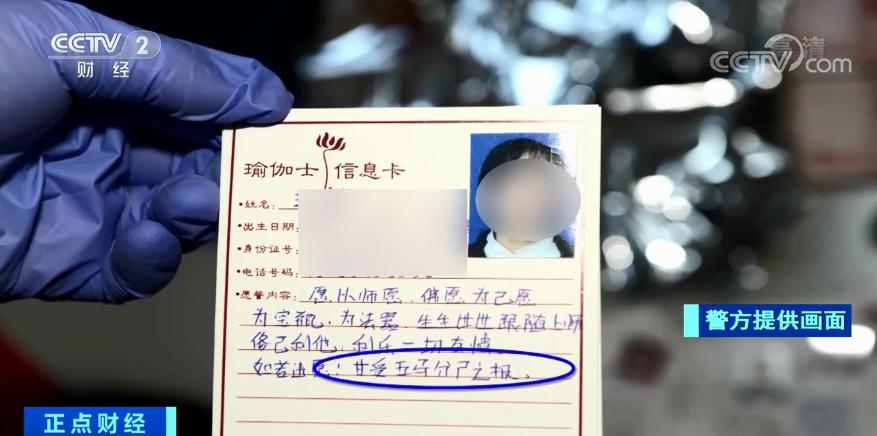 CCTV 2
财经
高清
CCTV.com
瑜伽士 信息卡
•姓名：
•出生日期：
•身份证号：
•电话号码：
•愿誓内容：愿以师愿、佛愿为己愿
为宝瓶、为法器、生生世世跟随上师
修己利他，利乐一切有情。
如若违愿！甘受五马分尸之报。
警方提供画面
正点财经